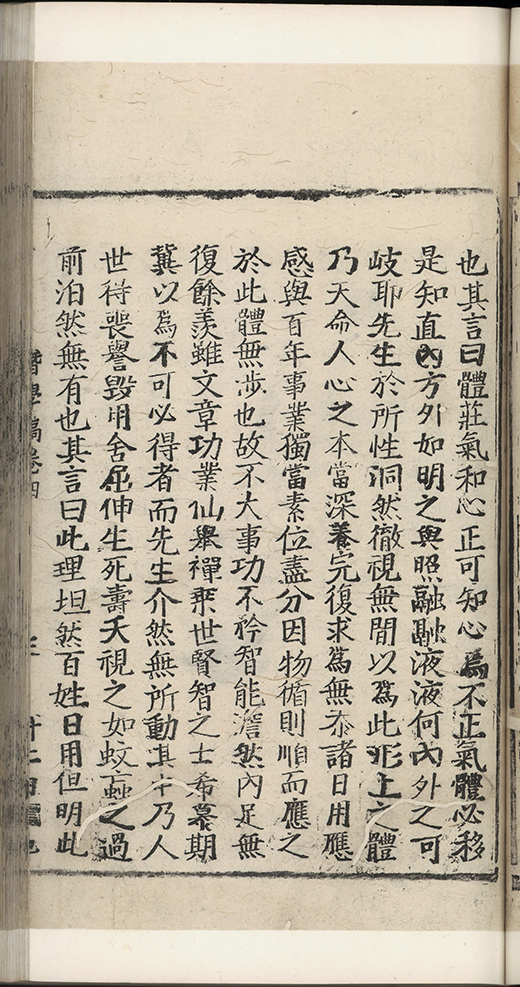 也其言曰體莊氣和心正可知心爲不正氣體必移
是知直內方外如明之與照融融液液何內外之可
岐耶先生於所性洞然徹視無閒以爲此形上之體
乃天命人心之本當深養完復求爲無忝諸日用應
感與百年事業獨當素位盡分因物循則順而應之
於此體無涉也故不大事功不矜智能澹然內足無
復餘羨雖文章功業仙舉禪乘世賢智之士希慕期
冀以爲不可必得者而先生介然無所動其中乃人
世得喪譽毀用舍屈伸生死壽夭視之如蚊䖟之過
前泊然無有也其言曰此理坦然百姓日用但明此
學稿卷四